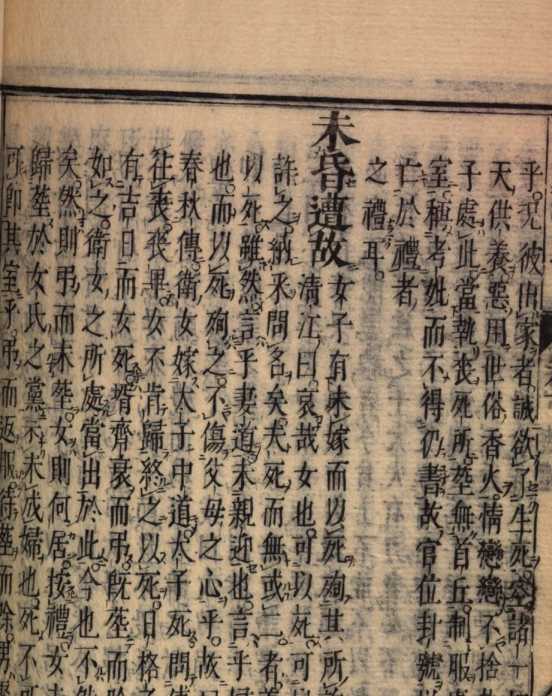 乎。況彼出家者。誠欲了生死。空諸
天。供養惡用世俗香火。情戀戀不捨
子處此當執喪。死所塟無首丘。制服
室稱考妣。而不得仍書故。官位封號
亡於禮者
之禮耳。
未昏遭故
女子有未嫁而以死殉其所
清江曰。哀哉女也。可以死可
許之。納采問名矣。夫死而無或二者
以死。雖然。言乎妻道。未親迎也。言乎婦
也。而以死殉之。不傷父母之心乎。故曰
春秋傳。衛女嫁太子。中道。太子死。問
往喪。喪畢。女不肯歸。終之以死。日格之
有吉日而女死。壻齊衰而弔。既塟而除
如之。衛女之所處當出於此。今也不
矣。然則弔而未塟。女則何居。按禮。女未
歸塟於女氏之黨。示未成婦也。死不
可即其室乎。弔而返。服待塟而除。男